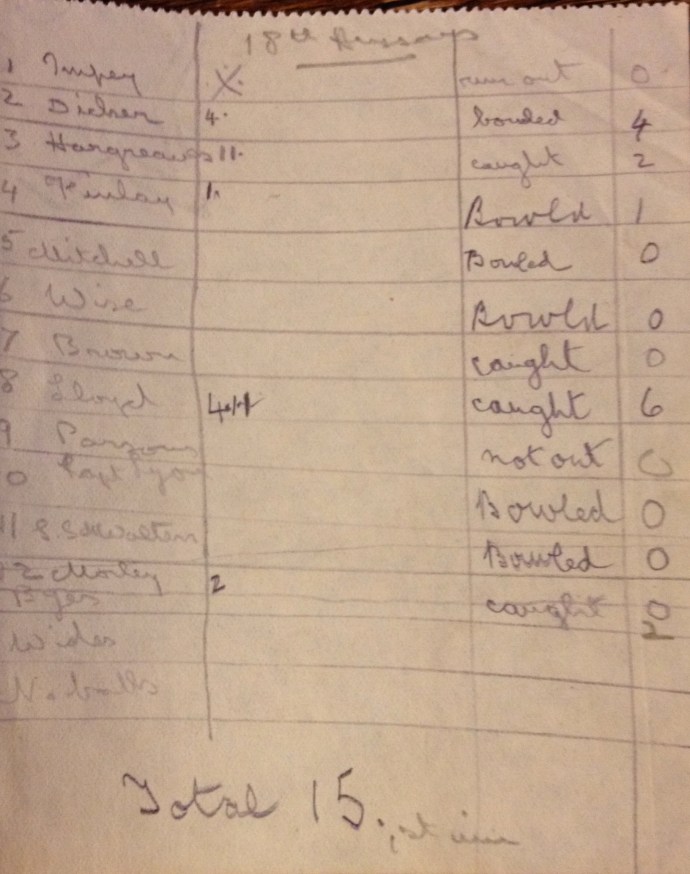 18th Hussars
1 Impey X. run out 0
2 4. bowled 4
3 Hargreaves 11. caught 2
4 Finlay 1. Bowld 1
5 Mitchell Bowled 0
6 Wise Bowld 0
7 Brown caught 0
8 Lloyd 4.11 caught 6
9 Parsons not out 0
0 Capt Bowled 0
11 Walters Bowled 0
12 Morley caught 0
Byes 2 2
Wides
N. balls
Total 15.